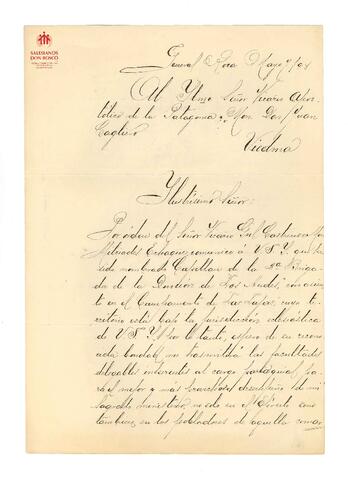 SALESIANOS
DON BOSCO
General Roca Mayo
Al Ylmo Señor Vicario Apos-
tólico de la Patagonia, Mon. Don Juan
Cagliero
Viedma
Ilustrísimo Señor:
Por orden del Señor Vicario Gral Castrense Mon
Milcíades Echagüe, comunico á V. S. Y. que he
sido nombrado Capellan de la 2ª Briga-
da de la Division de Los Andes, con asien-
to en el Campamento de Las Lajas, cuyo te-
rritorio está bajo la jurisdicción eclesiástica
de V. S. Y. Por lo tanto, espero de su recono-
cida bondad, me trasmitirá las facultades
delegables inherentes al cargo parroquial, pa-
ra el mejor y más provechoso desempeño de mi
Sagrado ministerio, no solo en el Ejército como
tambien en los pobladores de aquella comar-